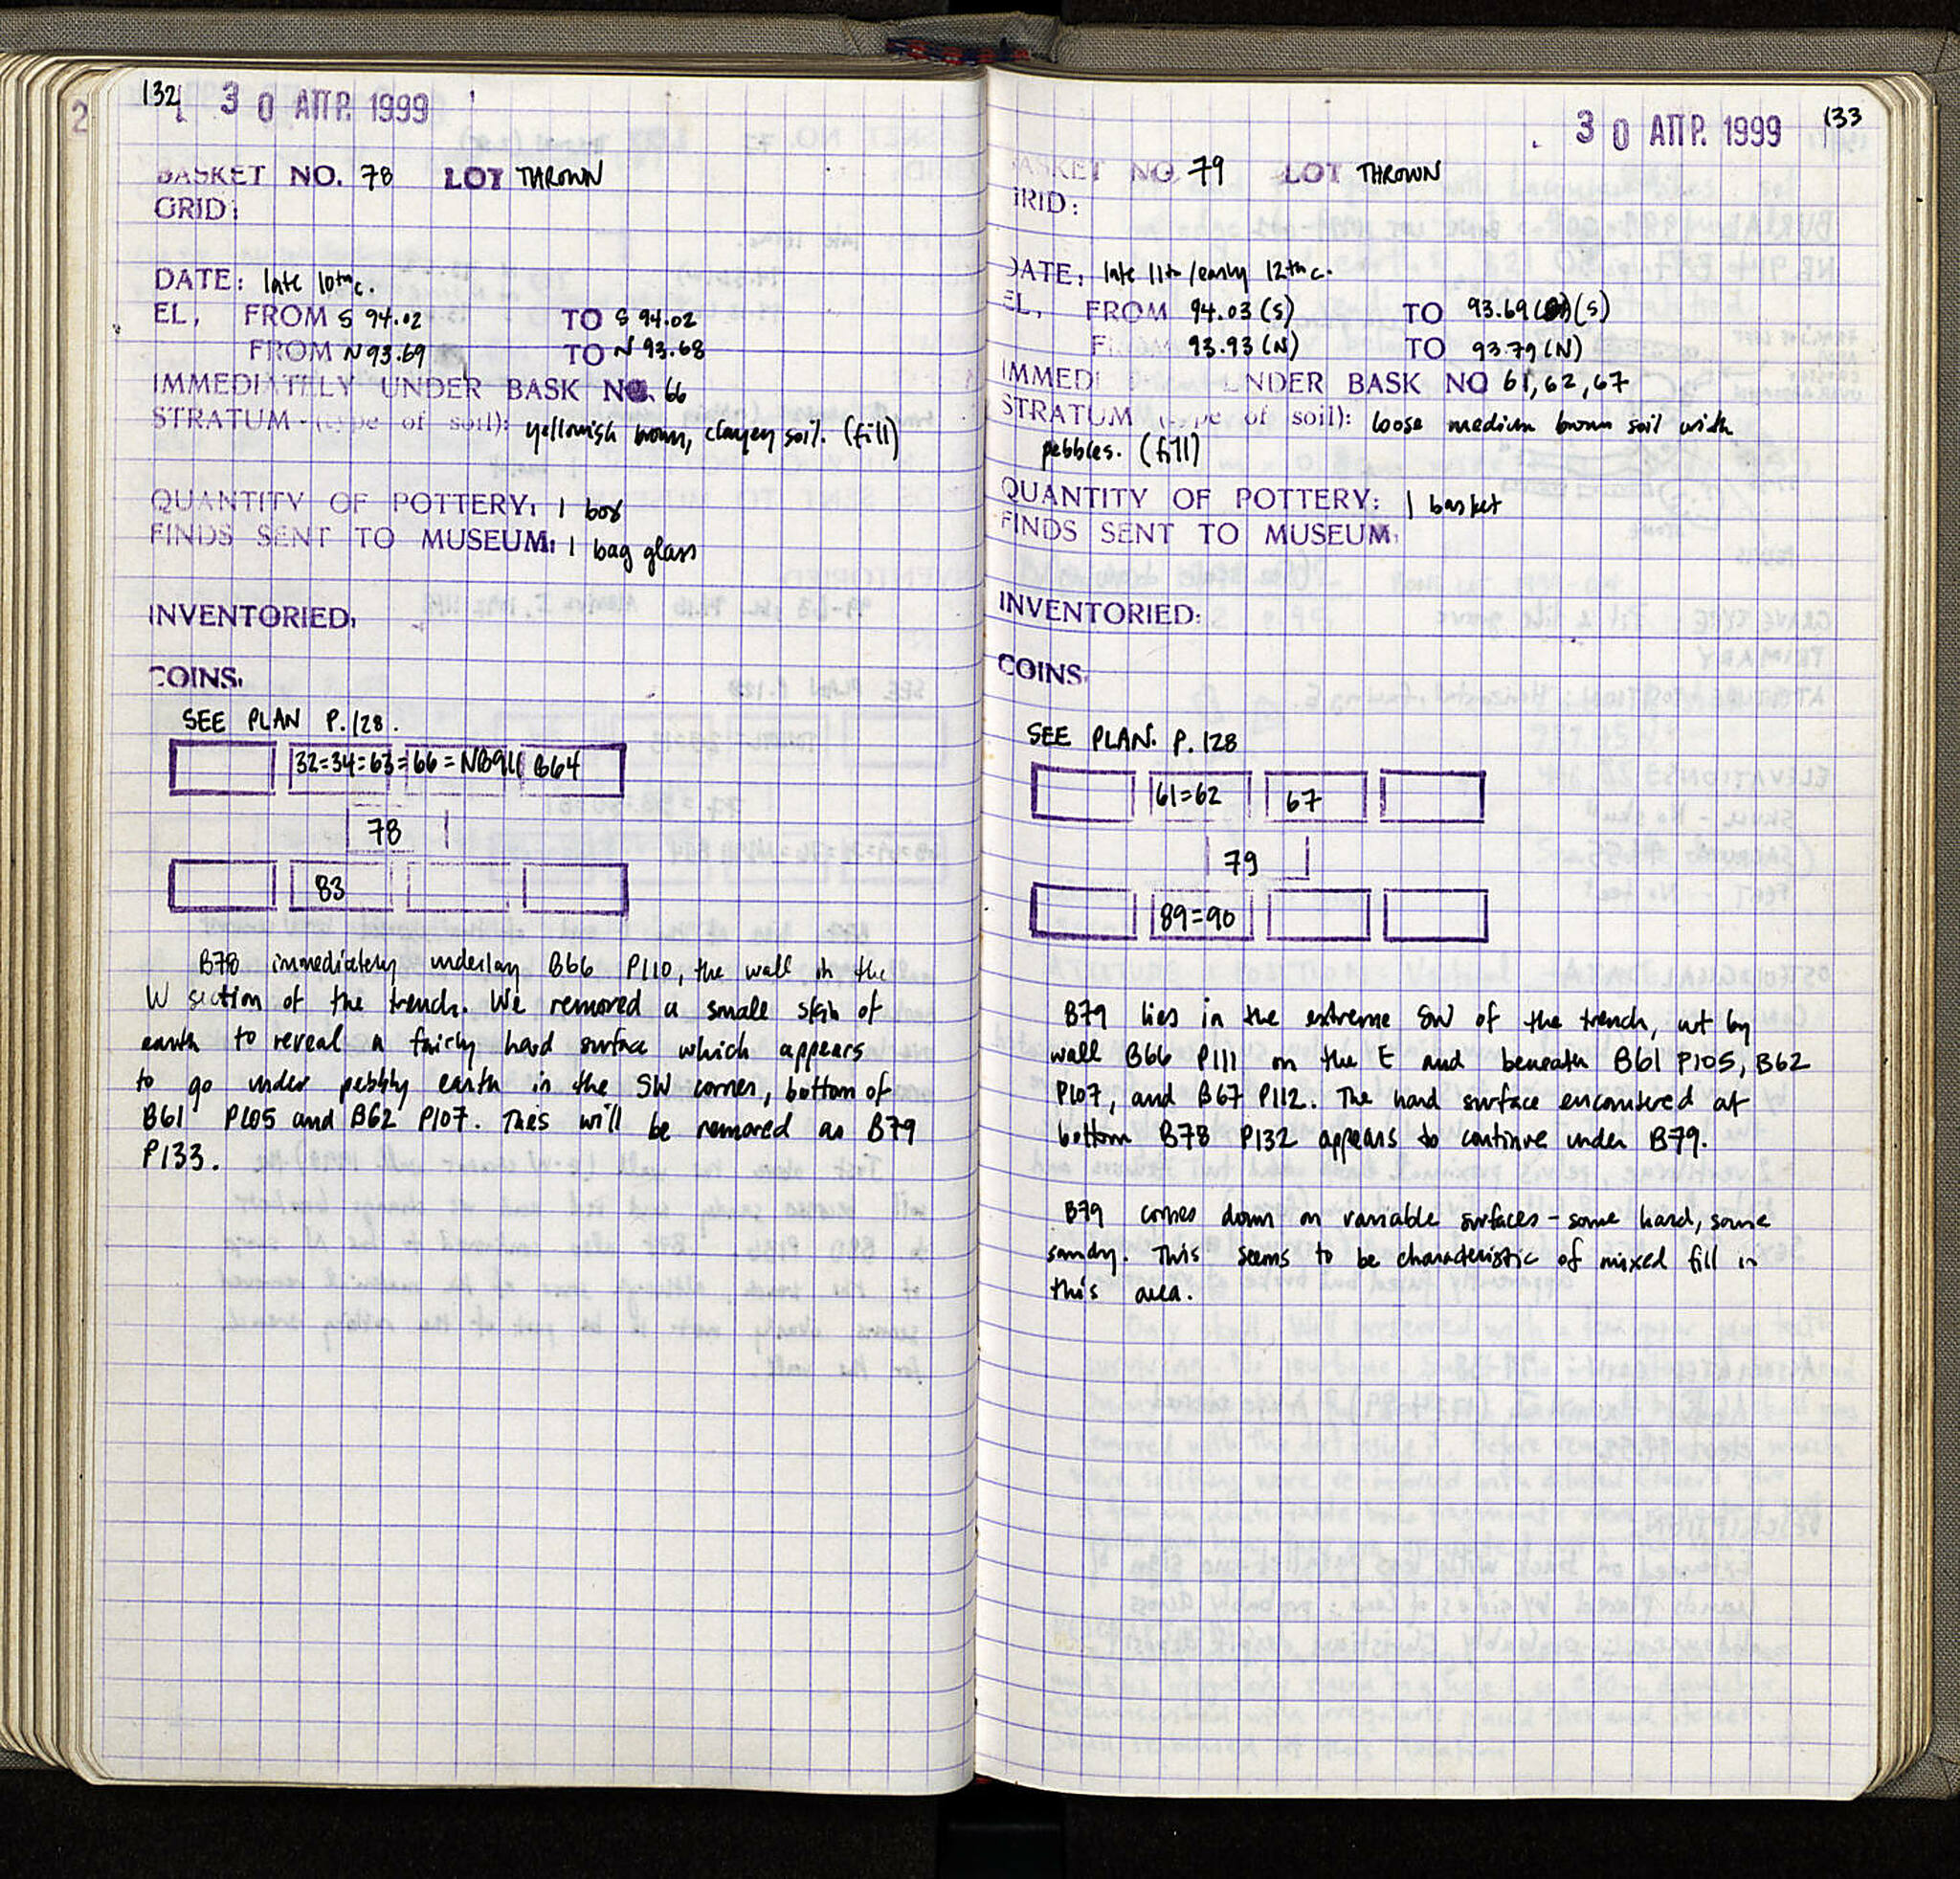 132 30 ΑΠΡ. 1999
BASKET NO. 78 LOT THROWN
GRID:
DATE: late 10th c.
EL, FROM S 94.02 TO S 94.02
FROM N 93.69 TO N 93.68
IMMEDIATELY UNDER BASK NO. 66
STRATUM (type of soil): yellowish brown, clayey soil. (fill)
QUANTITY OF POTTERY: 1 box
FINDS SENT TO MUSEUM: 1 bag glass
INVENTORIED:
COINS.
SEE PLAN P.128.
32=34=63=66=NB914 B64
78
83
B78 immediately underlay B66 P110, the wall in the
W section of the trench. We removed a small skin of
earth to reveal a fairly hard surface which appears
to go under pebbly earth in the SW corner, bottom of
B61 P105 and B62 P107. This will be removed as B79
P133.
30 ΑΠΡ. 1999 133
BASKET NO. 79 LOT THROWN
GRID:
DATE: late 11th/early 12th c.
EL, FROM 94.03 (S) TO 93.69 (S)
FROM 93.93 (N) TO 93.79 (N)
IMMEDI UNDER BASK NO 61, 62, 67
STRATUM (type of soil): loose medium brown soil with
pebbles. (fill)
QUANTITY OF POTTERY: 1 basket
FINDS SENT TO MUSEUM.
INVENTORIED:
COINS.
SEE PLAN. P.128
61=62 67
79
89=90
B79 lies in the extreme SW of the trench, cut by
wall B66 P111 on the E and beneath B61 P105, B62
P107, and B67 P112. The hard surface encountered at
bottom B78 P132 appears to continue under B79.
B79 comes down on variable surfaces - some hard, some
sandy. This seems to be characteristic of mixed fill in
this area.